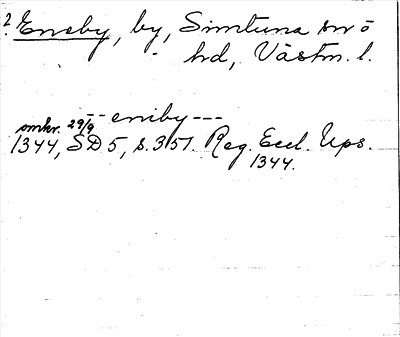 2. Ensby, by, Simtuna sn o
hd, Västm. l.
-- eniby ---
omkr. 29/9
1344, SD 5, s. 351. Reg. Eccl. Ups.
1344.